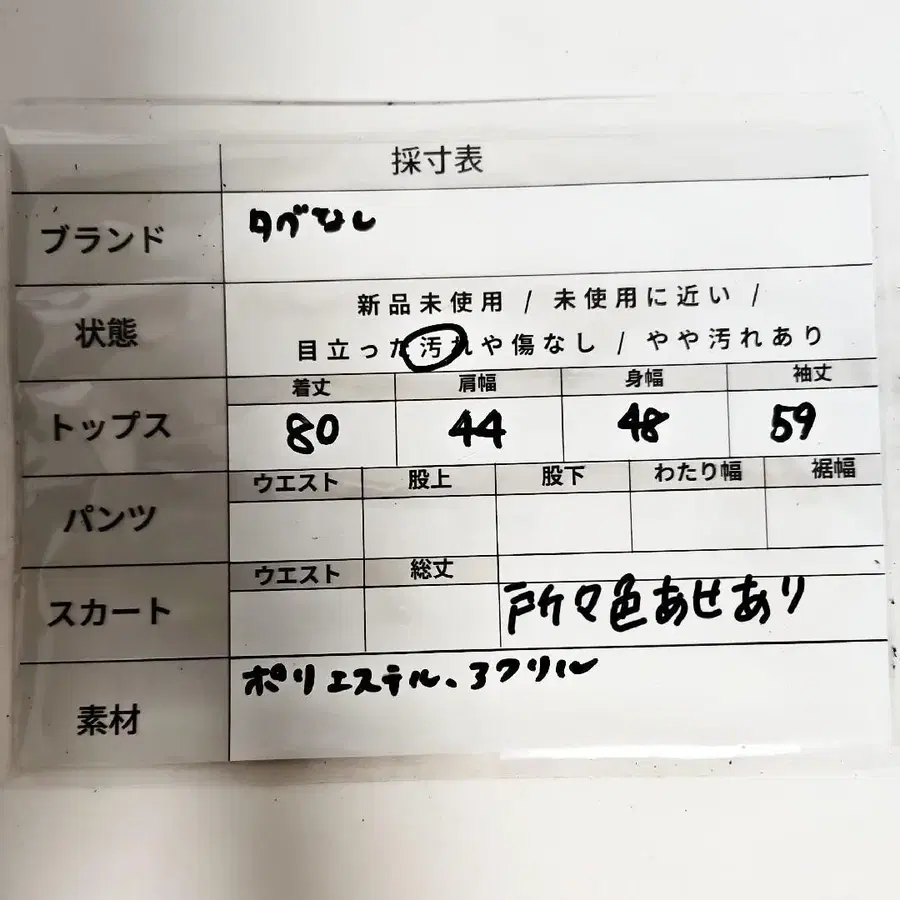 採寸表
ブランド タグなし
状態 新品未使用 / 未使用に近い /
目立った汚れや傷なし / やや汚れあり
着丈 肩幅 身幅 袖丈
トップス 80 44 48 59
ウエスト 股上 股下 わたり幅 裾幅
パンツ
ウエスト 総丈
スカート 所々色あせあり
素材 ポリエステル、アクリル